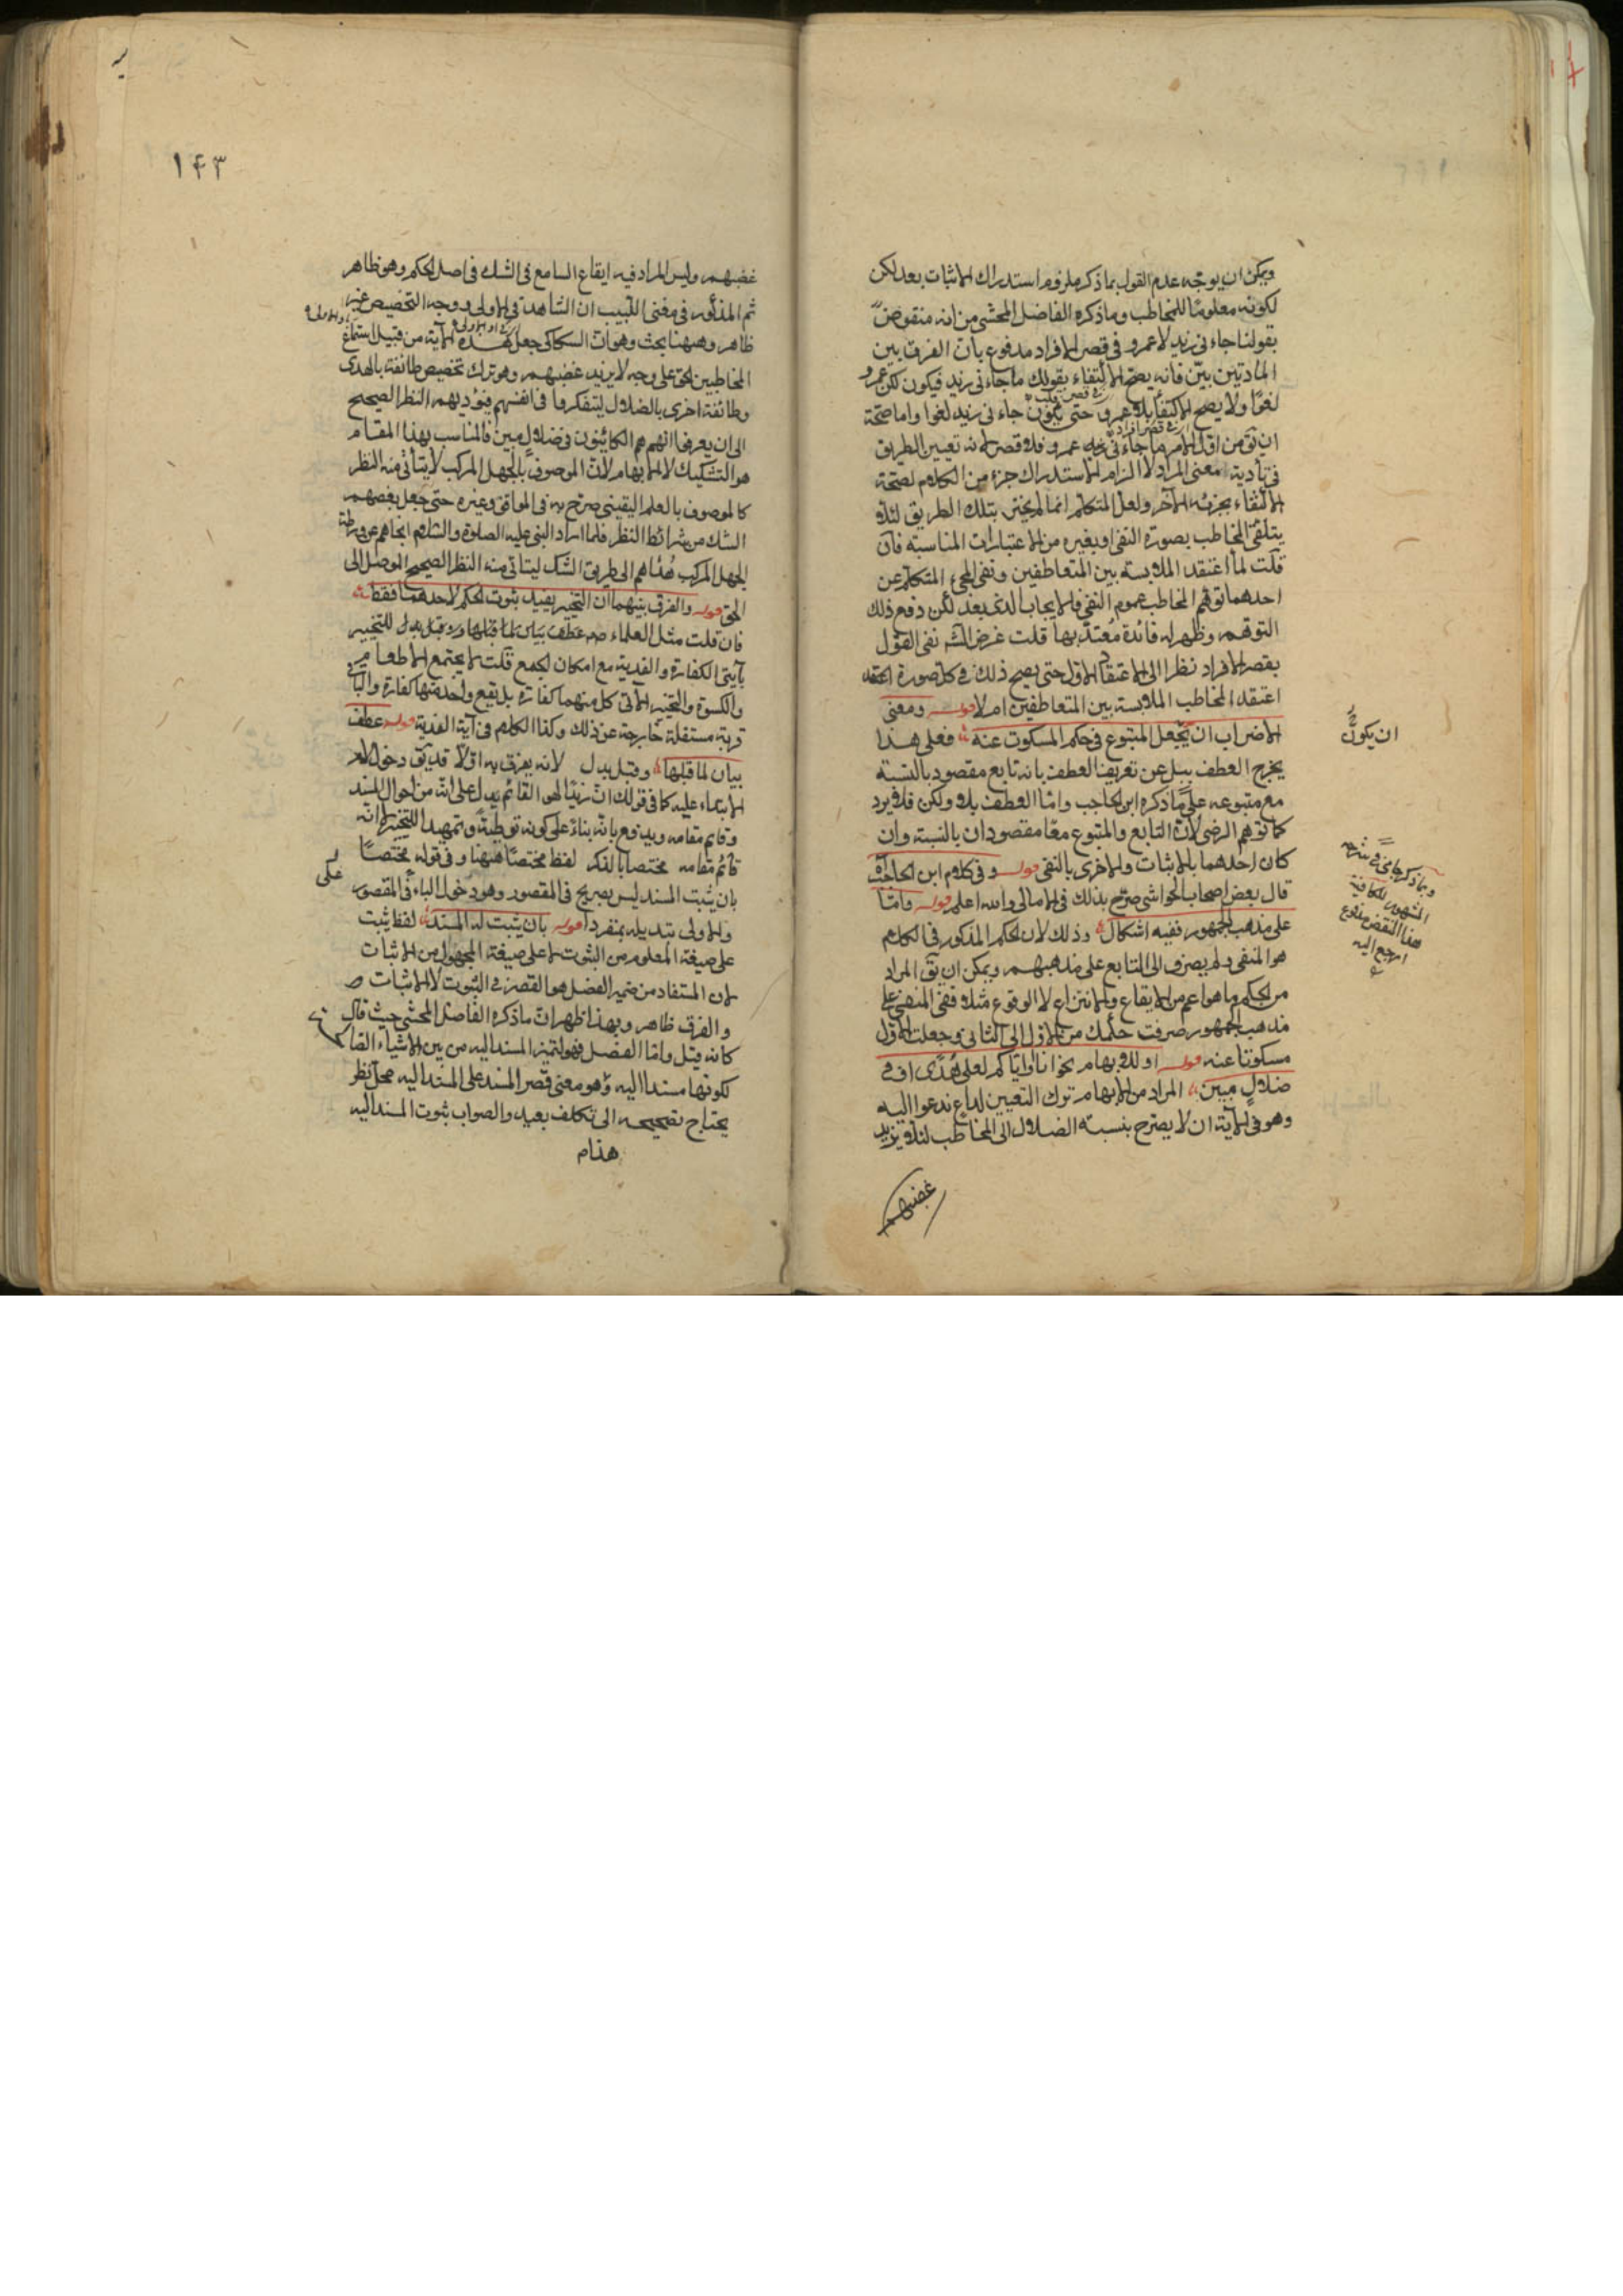 ويمكن ان يوجه عدم القول بما ذكر ملزوم استدراك الاثبات بعد لكن
لكونه معلومًا للمخاطب وما ذكره الفاضل المحشي من انه منقوض
بقولنا جاءني زيد لا عمرو في قصر الافراد مدفوع بان الفرق بين
المادتين بيّن فانه يصح الاكتفاء بقولك ما جاءني زيد فيكون لكن عمرو
لغوًا ولا يصح الاكتفاء بلا عمرو حتى يكون جاءني زيد لغوا واما صحة
ان يق من اول الامر ما جاءني عمرو فلا قصر لانه تعيين الطريق
في تأدية معنى المراد لا الزام لاستدراك جزء من الكلام لصحة
الاكتفاء بجزئه الآخر ولعل المتكلم انما لم يختر تلك الطريق لئلا
يتلقى المخاطب بصورة النفي او بغيره من الاعتبارات المناسبة فان
قلت لما اعتقد الملابسة بين المتعاطفين ونفى المجئ المتكلم عن
احدهما توهم المخاطب عموم النفي فالايجاب الذي بعد لكن دفع ذلك
التوهم وظهر له فائدة معتد بها قلت غرض الش نفى القول
بقصر الافراد نظرا الى الاعتقاد الاول حتى يصح ذلك في كل صورة
اعتقد المخاطب الملابسة بين المتعاطفين ام لا قوله ومعنى
الاضراب ان يجعل المتبوع في حكم المسكوت عنه فعلى هذا
يخرج العطف ببل عن تعريف العطف بانه تابع مقصود بالنسبة
مع متبوعه على ما ذكره ابن الحاجب واما العطف بلا ولكن فلا يرد
كما توهم الرضي لان التابع والمتبوع معًا مقصودان بالنسبة وان
كان احدهما بالاثبات والاخرى بالنفي قوله وفي كلام ابن الحاجب
قال بعض اصحاب الحواشي صرّح بذلك في الامالي والله اعلم قوله واما
على مذهب الجمهور ففيه اشكال وذلك لان الحكم المذكور في الكلام
هو المنفي ولم يصرف الى التابع على مذهبهم ويمكن ان يق المراد
من الحكم ما هو اعم من الايقاع والانتزاع لا الوقوع مثلا ففي المنفي على
مذهب الجمهور صرفت حكمك من الاول الى الثاني وجعلت الاول
مسكوتا عنه قوله او للابهام نحو انا او اياكم لعلى هدًى او في
ضلال مبين المراد من الابهام ترك التعيين لداع ندعوا اليه
وهو في الآية ان لا يصرح بنسبة الضلال الى المخاطب لئلا يزيد
غضبهم
ان يكون
وبما ذكر جامي في شرحه
المشهور للكافية
هذا النقض مدفوع
ارجع اليه
١٤٣
غضبهم وليس المراد فيه ايقاع السامع في الشك في اصل الحكم وهو ظاهر
ثم المذكور في مغنى اللبيب ان الشاهد في الاولى ووجه التخصيص غير
ظاهر وههنا بحث وهو ان السكاكي جعل هذه الآية من قبيل استماع
المخاطبين الحق على وجه لا يزيد غضبهم وهو ترك تخصيص طائفة بالهدى
وطائفة اخرى بالضلال ليتفكروا في انفسهم فيؤديهم النظر الصحيح
الى ان يعرفوا انهم هم الكائنون في ضلال مبين فالمناسب بهذا المقام
هو التشكيك لا الابهام لان الموصوف بالجهل المركب لا يتأتى منه النظر
كالموصوف بالعلم اليقيني صرح به في المواقف وغيره حتى جعل بعضهم
الشك من شرائط النظر فلما اراد النبي عليه الصلوة والسلام انجاهم عن ورطة
الجهل المركب هداهم الى طريق الشك ليتأتى منه النظر الصحيح الموصل الى
الحق قوله والفرق بينهما ان التخيير يفيد ثبوت الحكم لاحدهما فقط
فان قلت مثل العلماء عطف بيان لما قبلها وقيل بدل للتخيير
بآيتي الكفارة والفدية مع امكان الجمع قلت لا يجتمع الاطعام
والكسوة والتخيير الآتي كل منهما كفارة بل يقع واحد منها كفارة والباقي
قربة مستقلة خارجة عن ذلك وكذا الكلام في آية الفدية قوله عطف
بيان لما قبلها وقيل بدل لانه يفرق به اولا قد يق دخول لام
الابتداء عليه كما في قولك ان زيدًا لهو القائم يدل على انه من احوال المسند
وقايم مقامه ويدفع بانه بناءً على كونه توطئة وتمهيدا للتخيير انه
قائم مقامه مختصا بالذكر لفظ مختصًا ههنا وفي قوله مختصًا
بان يثبت المسند ليس بصريح في المقصور وهو دخول الباء في المقصور
على
والاولى تبديله بمنفردا قوله بان يثبت له المسند لفظ يثبت
على صيغة المعلوم من الثبوت لا على صيغة المجهول من الاثبات
لان المستفاد من ضمير الفصل هو القصر في الثبوت لا الاثبات
والفرق ظاهر وبهذا ظهر ان ما ذكره الفاضل المحشي حيث قال
كانه قيل واما الفصل فهو لتميز المسند اليه من بين الاشياء
لكونها مسندا اليه وهو معنى قصر المسند على المسند اليه محل نظر
يحتاج تصحيحه الى تكلف بعيد والصواب ثبوت المسند اليه
هذا م